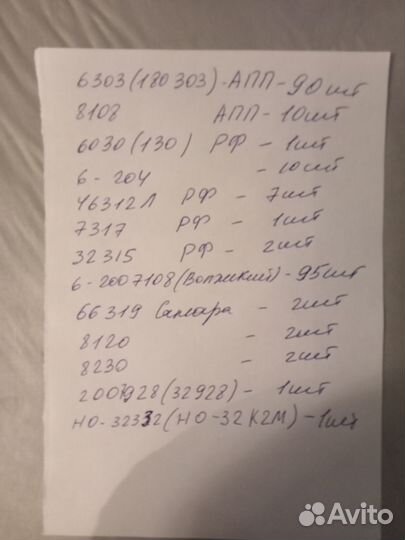 6303 (180303) - АПП - 90 шт
8108 АПП - 10 шт
6030 (130) РФ - 1 шт
6-204 - 10 шт
46312Л РФ - 7 шт
7317 РФ - 1 шт
32315 РФ - 2 шт
6-2007108 (Волжский) - 95 шт
66319 Самара - 2 шт
8120 - 2 шт
8230 - 2 шт
2007928 (32928) - 1 шт
НО-32332 (НО-32К2М) - 1 шт
Avito